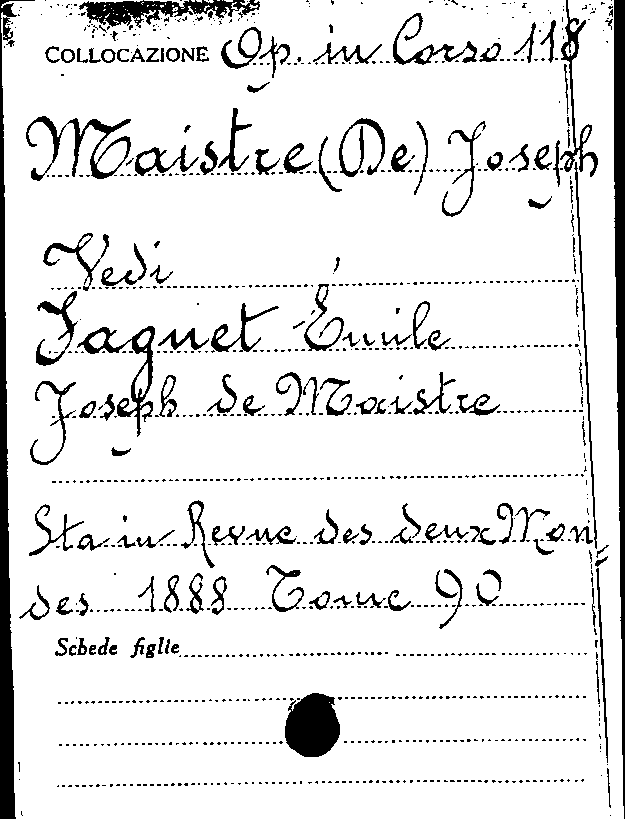 COLLOCAZIONE Op. in Corso 118
Maistre (De) Joseph
Vedi
Faguet Émile
Joseph de Maistre
Sta in Revue des deux Mon=
des 1888 Tome 90
Schede figlie